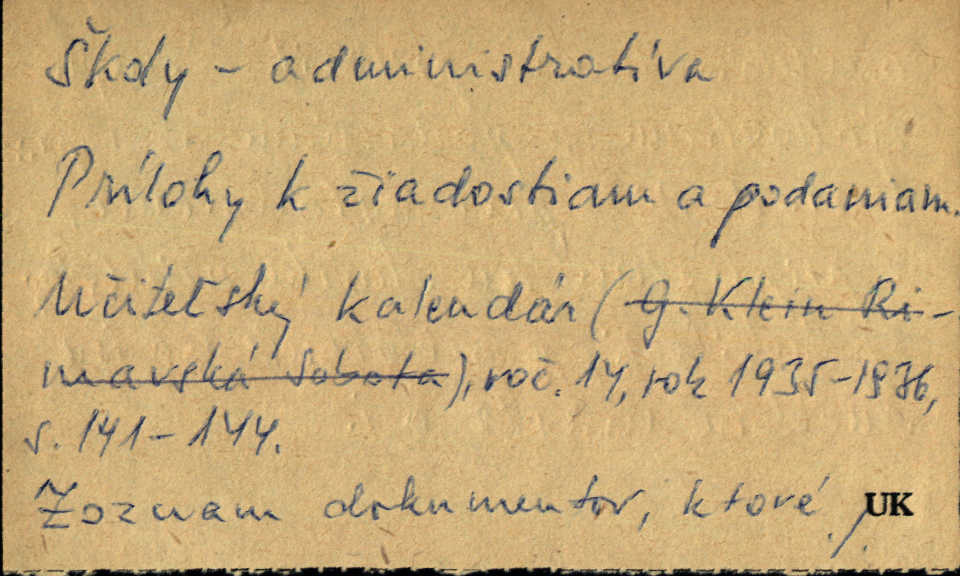 Školy - administratíva
Prílohy k žiadostiam a podaniam.
Učiteľský kalendár (G. Klein Ri-
mavská Sobota), roč. 14, rok 1935-1936,
s. 141-144.
Zoznam dokumentov, ktoré ./. UK